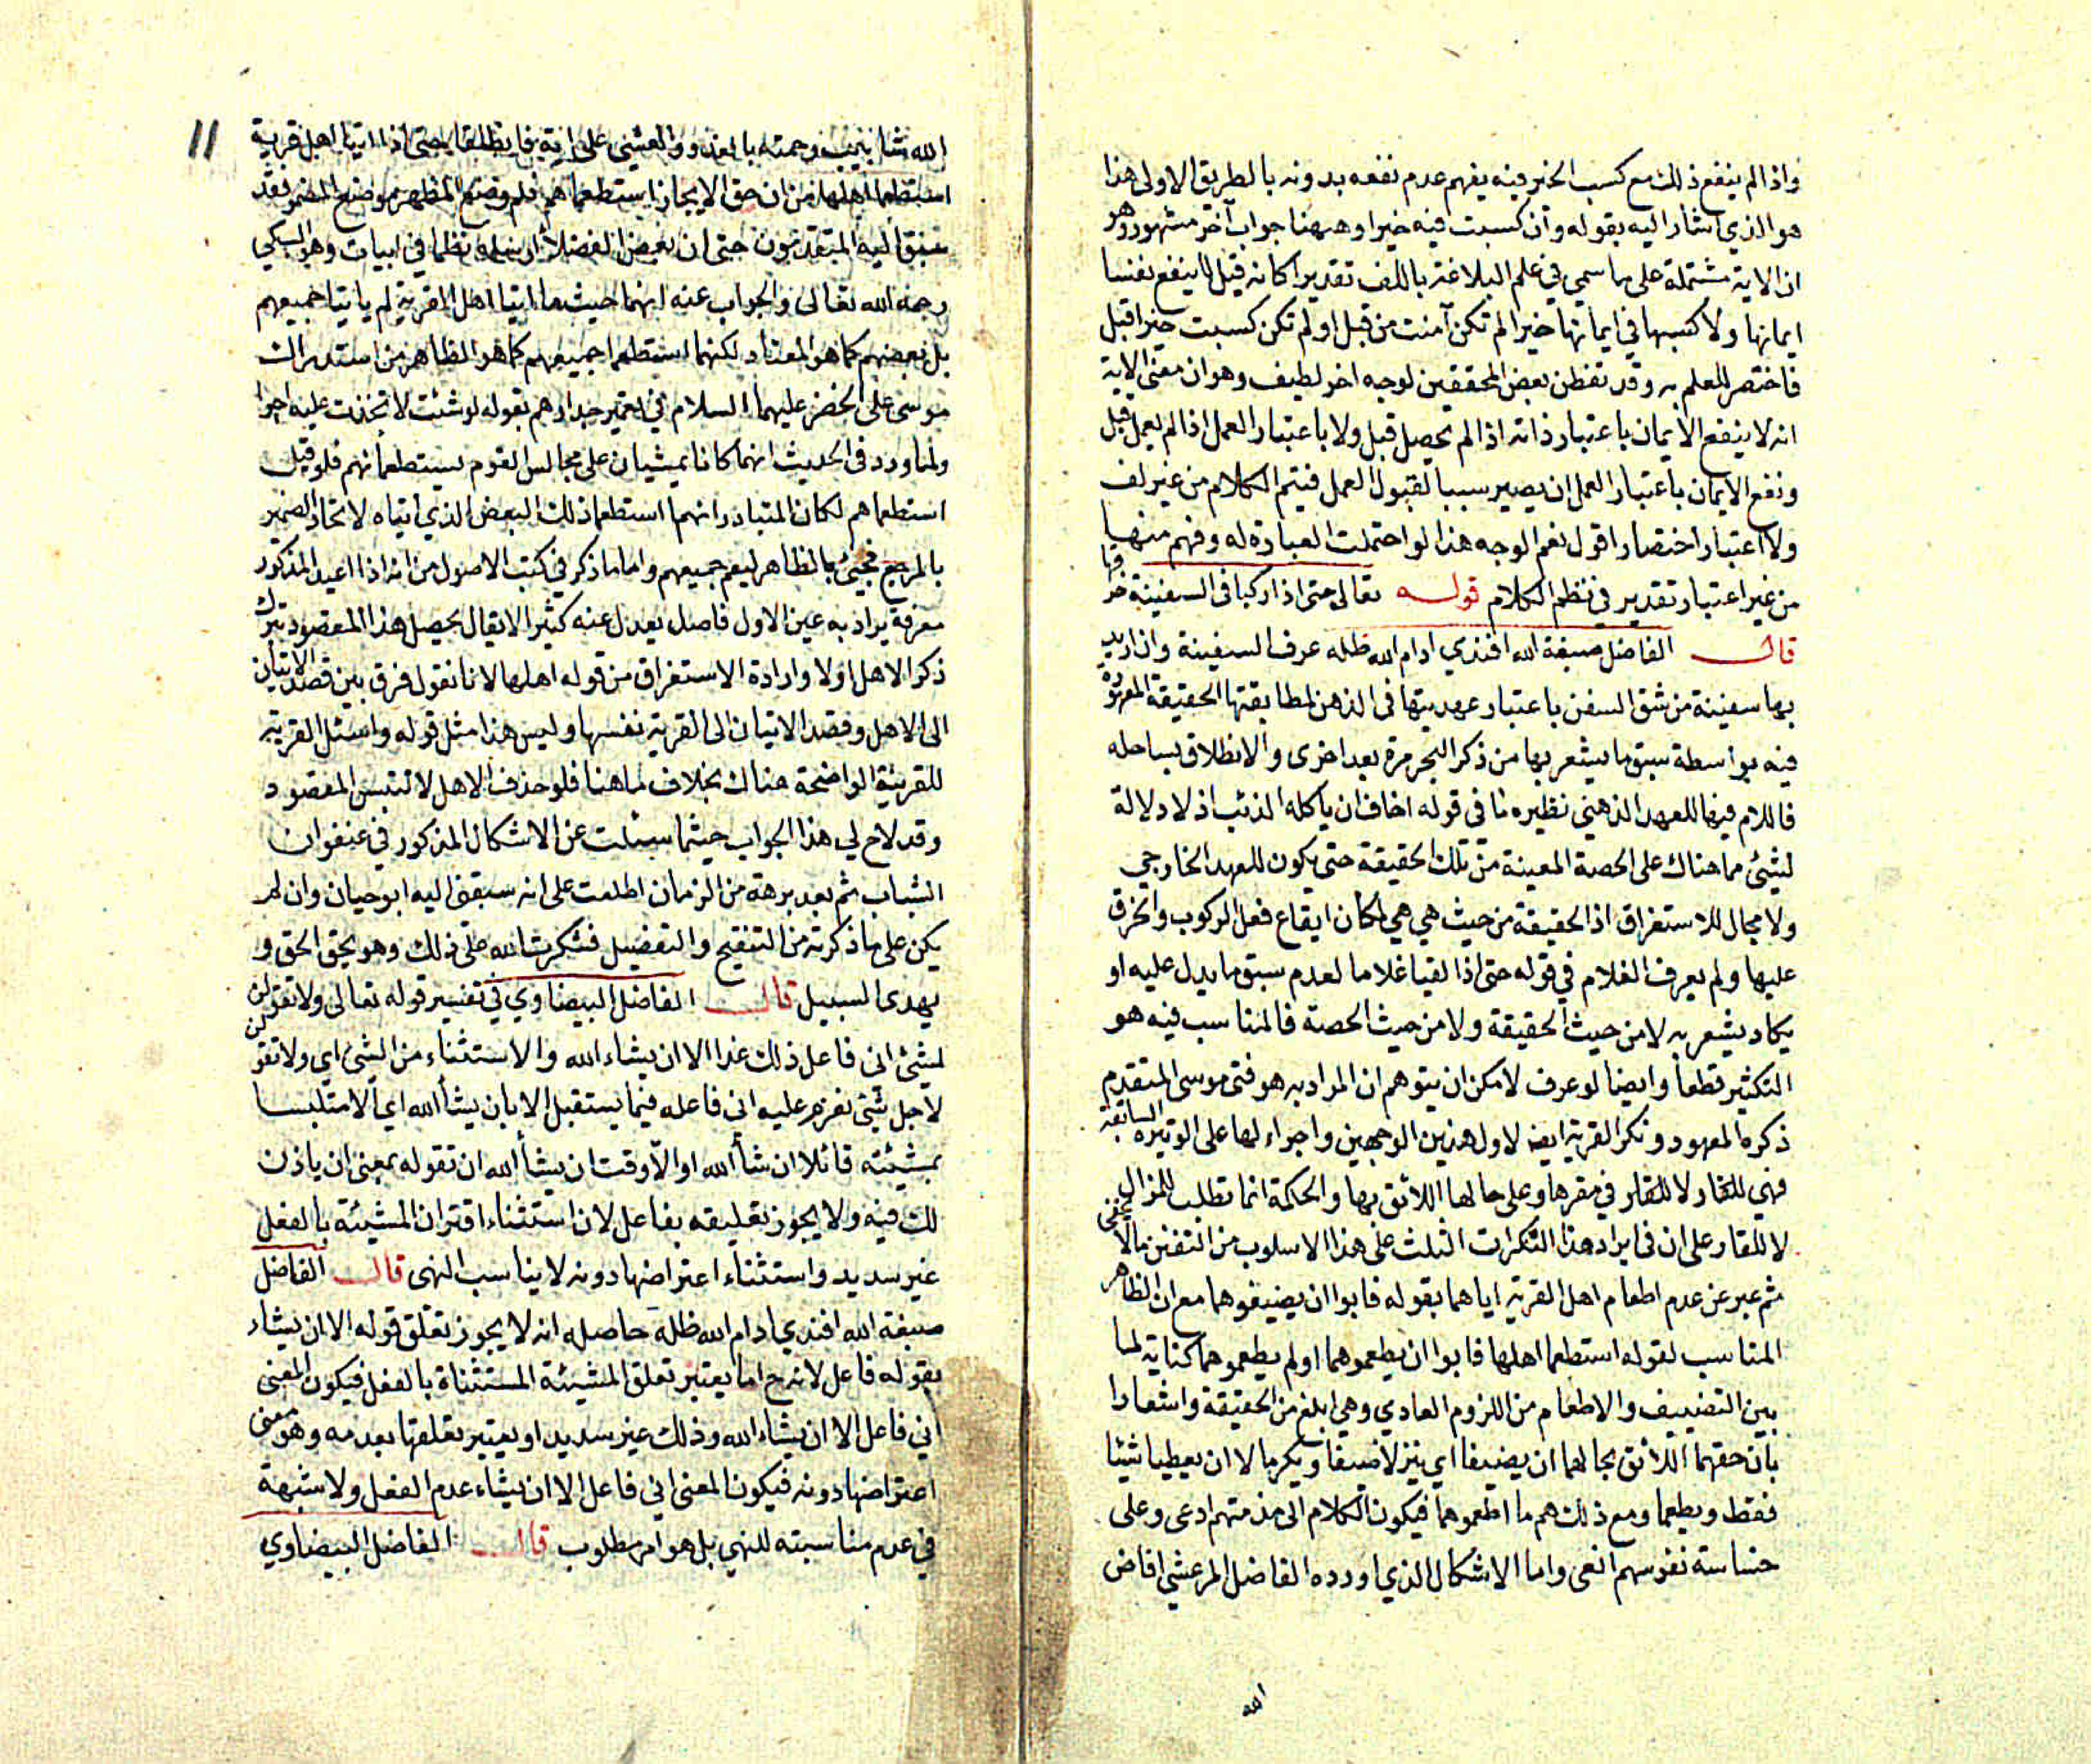 واذا لم ينفع ذلك مع كسب الخير فيه يفهم عدم نفعه بدونه بالطريق الاولى هذا
هو الذي اشار اليه بقوله وان كسبت فيه خيرا وههنا جواب آخر مشهور وهو
ان الاية مشتملة على ما سمي في علم البلاغة باللف تقديرا كانه قيل لا ينفع نفسا
ايمانها ولا كسبها في ايمانها خيرا لم تكن آمنت من قبل او لم تكن كسبت خيرا قبل
فاختصر للعلم به وقد تفطن بعض المحققين لوجه اخر لطيف وهو ان معنى الاية
انه لا ينفع الايمان باعتبار ذاته اذا لم يحصل قبل ولا باعتبار العمل اذا لم يعمل قبل
ونفع الايمان باعتبار العمل ان يصير سببا لقبول العمل فيتم الكلام من غير لف
ولا اعتبار اختصار اقول نعم الوجه هذا لو احتملت العبارة له وفهم منها
من غير اعتبار تقدير في نظم الكلام قوله تعالى حتى اذا ركبا في السفينة خرقها
قال الفاضل صبغة الله افندي ادام الله ظله عرف السفينة وان اريد
بها سفينة من شق السفن باعتبار عهديتها في الذهن لمطابقتها الحقيقة المعهودة
فيه بواسطة سبق ما يشعر بها من ذكر البحر مرة بعد اخرى والانطلاق بساحله
فاللام فيها للعهد الذهني نظيره ما في قوله اخاف ان ياكله الذئب اذ لا دلالة
لشيء مما هناك على الحصة المعينة من تلك الحقيقة حتى يكون للعهد الخارجي
ولا مجال للاستغراق اذ الحقيقة من حيث هي هي لمكان ايقاع فعل الركوب والخرق
عليها ولم يعرف الغلام في قوله حتى اذا لقيا غلاما لعدم سبق ما يدل عليه او
يكاد يشعر به لا من حيث الحقيقة ولا من حيث الحصة فالمناسب فيه هو
التكثير قطعا وايضا لو عرف لامكن ان يتوهم ان المراد به هو فتى موسى المتقدم
ذكره المعهود ونكر القرية ايضا لاول هذين الوجهين واجراء لها على الوتيرة السابقة
فهي للقار لا للقار في مقرها وعلى حالها اللائق بها والحكمة انما تطلب للزال
لا للقار على ان في ايراد هذا النكرات الثلث على هذا الاسلوب من التفنن ما لا يخفى
ثم عبر عن عدم اطعام اهل القرية اياهما بقوله فابوا ان يضيفوهما مع ان الظاهر
المناسب لقوله استطعما اهلها فابوا ان يطعموهما او لم يطعموهما كناية لما
بين التضييف والاطعام من اللزوم العادي وهي ابلغ من الحقيقة واشعارا
بان حقهما اللائق بحالهما ان يضيفا اي ينزلا ضيفا ويكرما لا ان يعطيا شيئا
فقط ويطعما ومع ذلك هم ما اطعموهما فيكون الكلام الى مذمتهم ادعى وعلى
خساسة نفوسهم انعى واما الاشكال الذي اورده الفاضل المرعشي افاض
الله
١١
الله شابيب رحمته بالغدو والعشي على اية فانطلقا حتى اذا اتيا اهل قرية
استطعما اهلها من ان حق الايجاز استطعماهم فلم وضع المظهر موضع المضمر فقد
سبق اليه المتقدمون حتى ان بعض الفضلا ارسله نظما في ابيات وهو السبكي
رحمه الله تعالى والجواب عنه انهما حيث ما اتيا اهل القرية لم ياتيا جميعهم
بل بعضهم كما هو المعتاد لكنهما استطعما جميعهم كما هو الظاهر من استدراك
موسى على الخضر عليهما السلام في تعمير جدارهم بقوله لو شئت لاتخذت عليه اجرا
ولما ورد في الحديث انهما كانا يمشيان على مجالس القوم يستطعمانهم فلو قيل
استطعماهم لكان المتبادر انهما استطعما ذلك البعض الذي اتياه لاتحاد الضمير
بالمرجع فجيء بالظاهر ليعم جميعهم واما ما ذكر في كتب الاصول من انه اذا اعيد المذكور
معرفة يراد به عين الاول فاصل يعدل عنه كثيرا لا يقال يحصل هذا المقصود بترك
ذكر الاهل اولا وارادة الاستغراق من قوله اهلها لانا نقول فرق بين قصد الاتيان
الى الاهل وقصد الاتيان الى القرية نفسها وليس هذا مثل قوله واسئل القرية
للقرينة الواضحة هناك بخلاف ما هنا فلو حذف الاهل لالتبس المقصود
وقد لاح لي هذا الجواب حيثما سئلت عن الاشكال المذكور في عنفوان
الشباب ثم بعد برهة من الزمان اطلعت على انه سبقني اليه ابو حيان وان لم
يكن على ما ذكرته من التنقيح والتفضيل فشكرت الله على ذلك وهو يحق الحق و
يهدى السبيل قال الفاضل البيضاوي في تفسير قوله تعالى ولا تقولن
لشيء اني فاعل ذلك غدا الا ان يشاء الله والاستثناء من الشيء اي ولا تقولن
لاجل شيء تعزم عليه اني فاعله فيما يستقبل الا بان يشأ الله اي الا متلبسا
بمشيئته قائلا ان شأ الله او الا وقت ان يشأ الله ان تقوله بمعنى ان ياذن
لك فيه ولا يجوز تعليقه بفاعل لان استثناء اقتران المشيئة بالفعل
غير سديد واستثناء اعتراضها دونه لا يناسب النهى قال الفاضل
صبغة الله افندي ادام الله ظله حاصله انه لا يجوز تعلق قوله الا ان يشاء
بقوله فاعل لانه ح اما يعتبر تعلق المشيئة المستثناة بالفعل فيكون المعنى
اني فاعل الا ان يشاء الله وذلك غير سديد او يعتبر تعلقها بعدمه وهو معنى
اعتراضها دونه فيكون المعنى اني فاعل الا ان يشاء عدم الفعل ولا شبهة
في عدم مناسبته للنهي بل هو امر مطلوب قال الفاضل البيضاوي